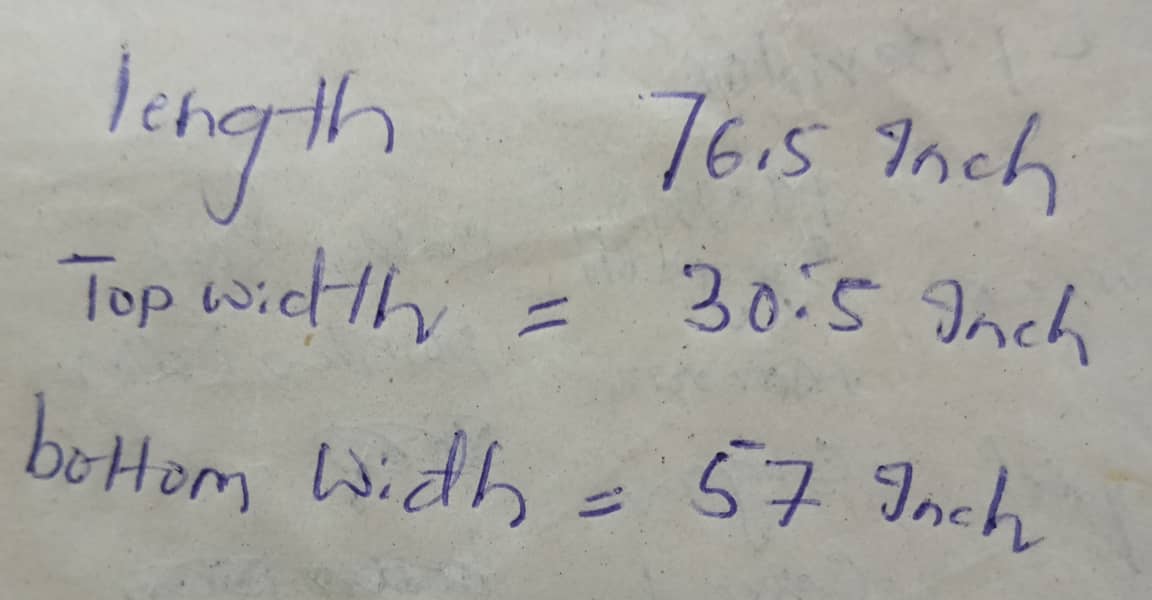 length 76.5 Inch
Top width = 30.5 Inch
bottom width = 57 Inch